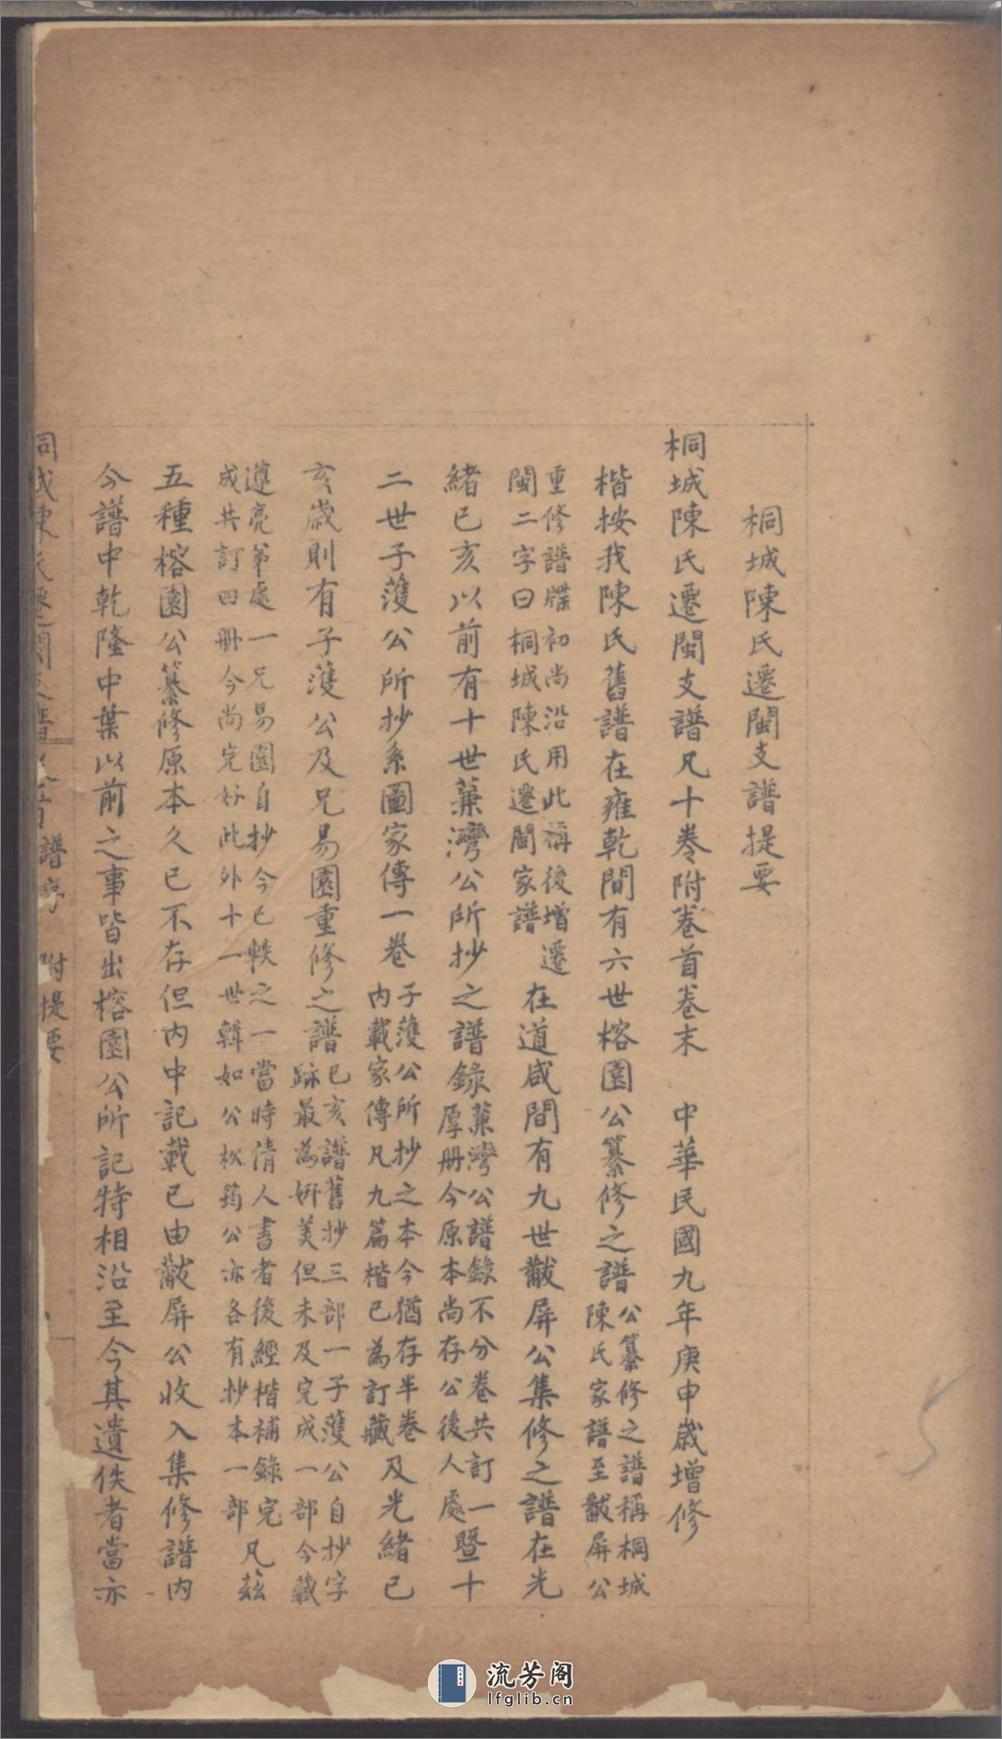 桐城陳氏遷閩支譜提要
桐城陳氏遷閩支譜凡十卷附卷首卷末　中華民國九年庚申歲增修
楷按我陳氏舊譜在雍乾間有六世榕園公纂修之譜公纂修之譜稱桐城
陳氏家譜至黻屏公
重修譜牒初尚沿用此稱後增遷
閩二字曰桐城陳氏遷閩家譜在道咸間有九世黻屏公集修之譜在光
緒己亥以前有十世蒹灣公所抄之譜錄蒹灣公譜錄不分卷共訂一
厚冊今原本尚存公後人處暨十
二世子蘐公所抄系圖家傳一卷子蘐公所抄之本今猶存半卷
內載家傳凡九篇楷已為訂藏及光緒己
亥歲則有子蘐公及兄易園重修之譜己亥譜舊抄三部一子蘐公自抄字
跡最為妍美但未及完成一部今藏
遵亮弟處一兄易園自抄今已軼之一當時倩人書者後經楷補錄完
成共訂四冊今尚完好此外十一世韓如公松筠公亦各有抄本一部凡茲
五種榕園公纂修原本久已不存但內中記載已由黻屏公收入集修譜內
今譜中乾隆中葉以前之事皆出榕園公所記特相沿至今其遺佚者當亦
譜序　附提要
5
流芳阁
lfglib.cn